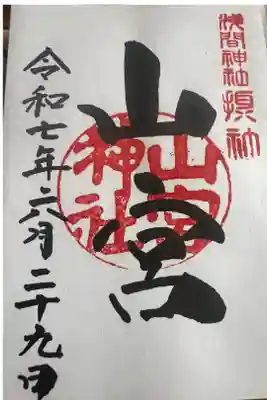 浅間神社摂社
山宮
山宮神社
令和七年六月二十九日